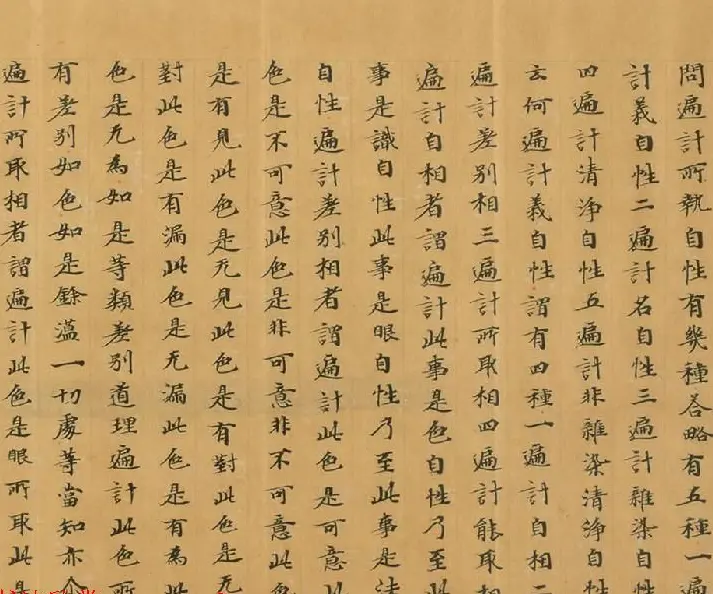 問遍計所執自性有幾種答略有五種一遍
計義自性二遍計名自性三遍計雜染自性
四遍計清淨自性五遍計非雜染清淨自性
云何遍計義自性謂有四種一遍計自相二
遍計差別相三遍計所取相四遍計能取相
遍計自相者謂遍計此事是色自性乃至此
事是識自性此事是眼自性乃至此事是法
自性遍計差別相者謂遍計此色是可意此
色是不可意此色是非可意非不可意此色
是有見此色是无見此色是有對此色是无
對此色是有漏此色是无漏此色是有為此
色是无為如是等類差別道理遍計此色所
有差別如色如是餘蘊一切處等當知亦尒
遍計所取相者謂遍計此色是眼所取此是